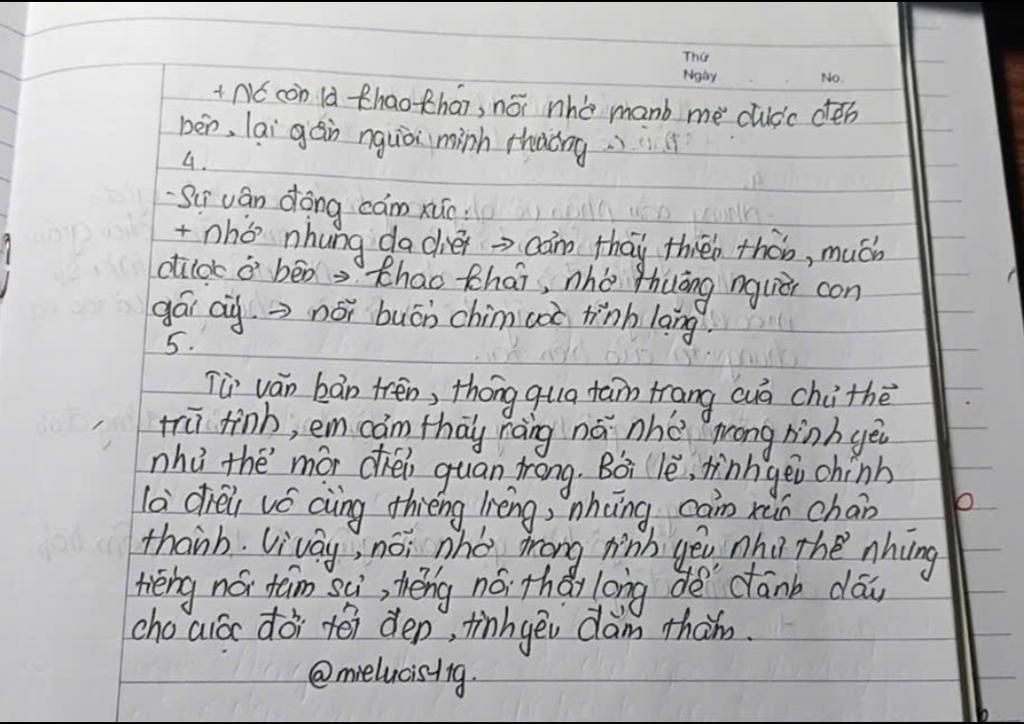 Thứ
Ngày . . No.
+ Nó còn là khao khát, nỗi nhớ mạnh mẽ được đến
bên, lại gần người mình thương
4.
- Sự vận động cảm xúc:
+ nhớ nhung da diết → cảm thấy thiếu thốn, muốn
được ở bên → khao khát, nhớ thương người con
gái ấy → nỗi buồn chìm vào tĩnh lặng.
5.
Từ văn bản trên, thông qua tâm trạng của chủ thể
trữ tình, em cảm thấy rằng nỗi nhớ trong tình yêu
như thể một điều quan trọng. Bởi lẽ, tình yêu chính
là điều vô cùng thiêng liêng, những cảm xúc chân
thành. Vì vậy, nỗi nhớ trong tình yêu như thể những
tiếng nói tâm sự, tiếng nói thật lòng để đánh dấu
cho cuộc đời tốt đẹp, tình yêu đằm thắm.